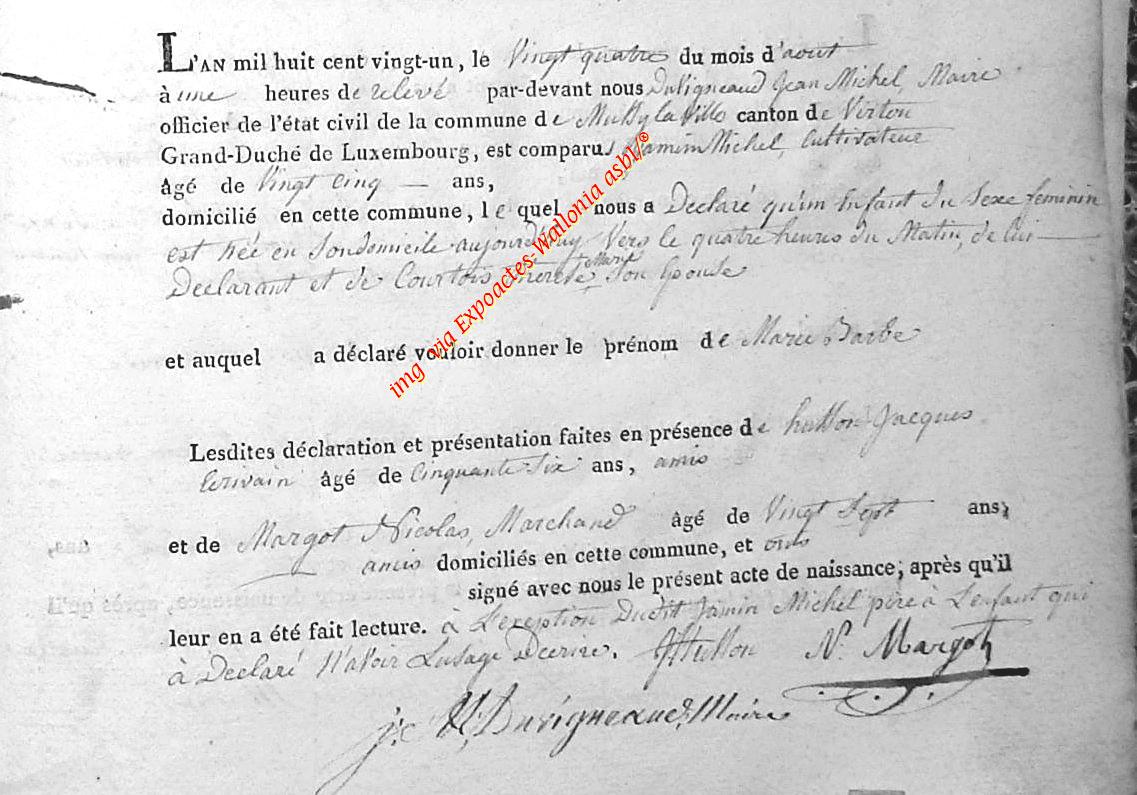 L'AN mil huit cent vingt-un, le Vingt quatre du mois d'aout
à une heures de relevé par-devant nous Duvigneaud Jean Michel, Maire
officier de l'état civil de la commune de Mussy la Ville canton de Virton
Grand-Duché de Luxembourg, est comparus Jamin Michel, Cultivateur
âgé de Vingt Cinq — ans,
domicilié en cette commune, le quel nous a Declaré qu'un Enfant du Sexe feminin
est née en Son domicile aujourd'huy Vers le quatre heures du Matin, de Lui
Declarant et de Courtois Therese Marie Son Epouse
et auquel a déclaré vouloir donner le prénom de Marie Barbe
Lesdites déclaration et présentation faites en présence de husson Jacques
Ecrivain âgé de Cinquante Six ans, amis
et de Margot Nicolas, Marchand âgé de Vingt Sept ans,
amis domiciliés en cette commune, et ont
signé avec nous le présent acte de naissance; après qu'il
leur en a été fait lecture. à L'exeption Dudit Jamin Michel père à L'enfant qui
à Declaré N'avoir Lusage Decrire. JHusson N. Margot
j: M: Duvigneaud, Maire
img via Expoactes-Wallonia asbl/®